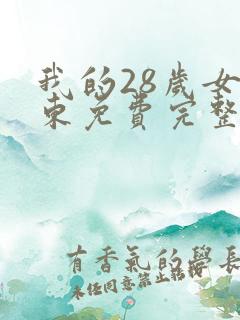 我的28歲女
東免費完整
有香氣的學長
未经同意禁止转授